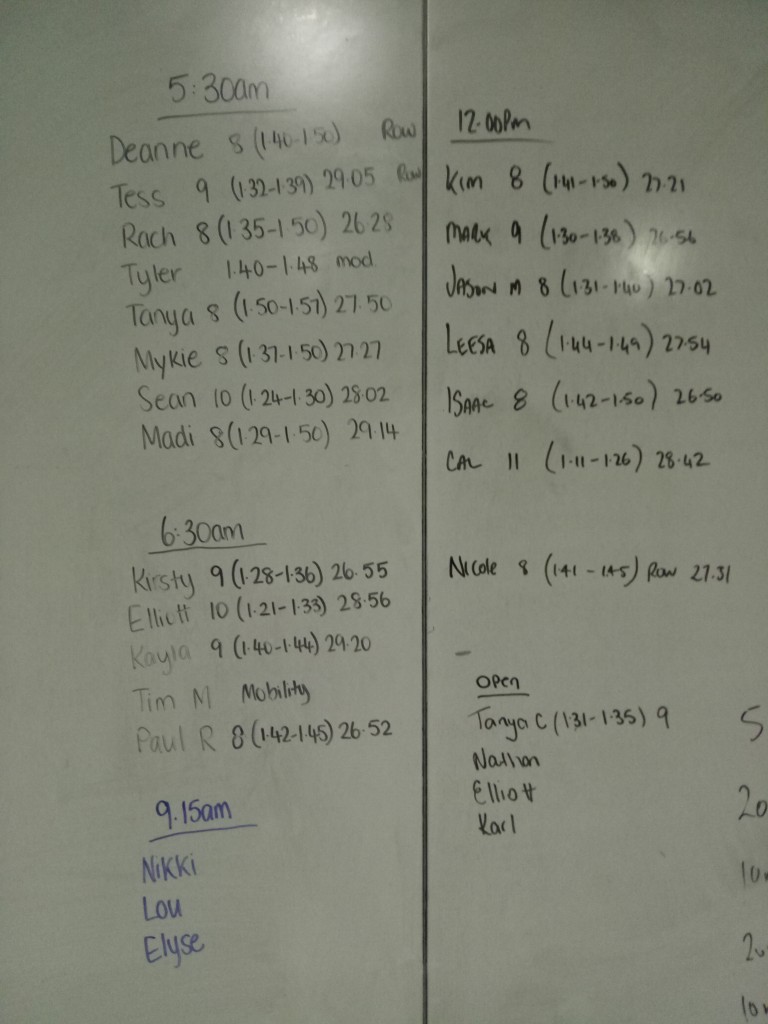 5:30am
Deanne 8 (1.40-1.50) Row
Tess 9 (1.32-1.39) 29.05 Row
Rach 8 (1.35-1.50) 26.28
Tyler 1.40-1.48 mod
Tanya 8 (1.50-1.57) 27.50
Mykie 8 (1.37-1.50) 27.27
Sean 10 (1.24-1.30) 28.02
Madi 8 (1.29-1.50) 29.14
6:30am
Kirsty 9 (1.28-1.36) 26.55
Elliott 10 (1.21-1.33) 28.56
Kayla 9 (1.40-1.44) 29.20
Tim M Mobility
Paul R 8 (1.42-1.45) 26.52
9.15am
Nikki
Lou
Elyse
12.00pm
Kim 8 (1.41-1.50) 27.21
MARK 9 (1.30-1.38) 26.56
JASON M 8 (1.31-1.40) 27.02
LEESA 8 (1.44-1.49) 27.54
ISAAC 8 (1.42-1.50) 26.50
CAL 11 (1.11-1.26) 28.42
Nicole 8 (1.41-1.45) Row 27.31
OPEN
Tanya C (1.31-1.35) 9
Elliott
Karl
5
20
10